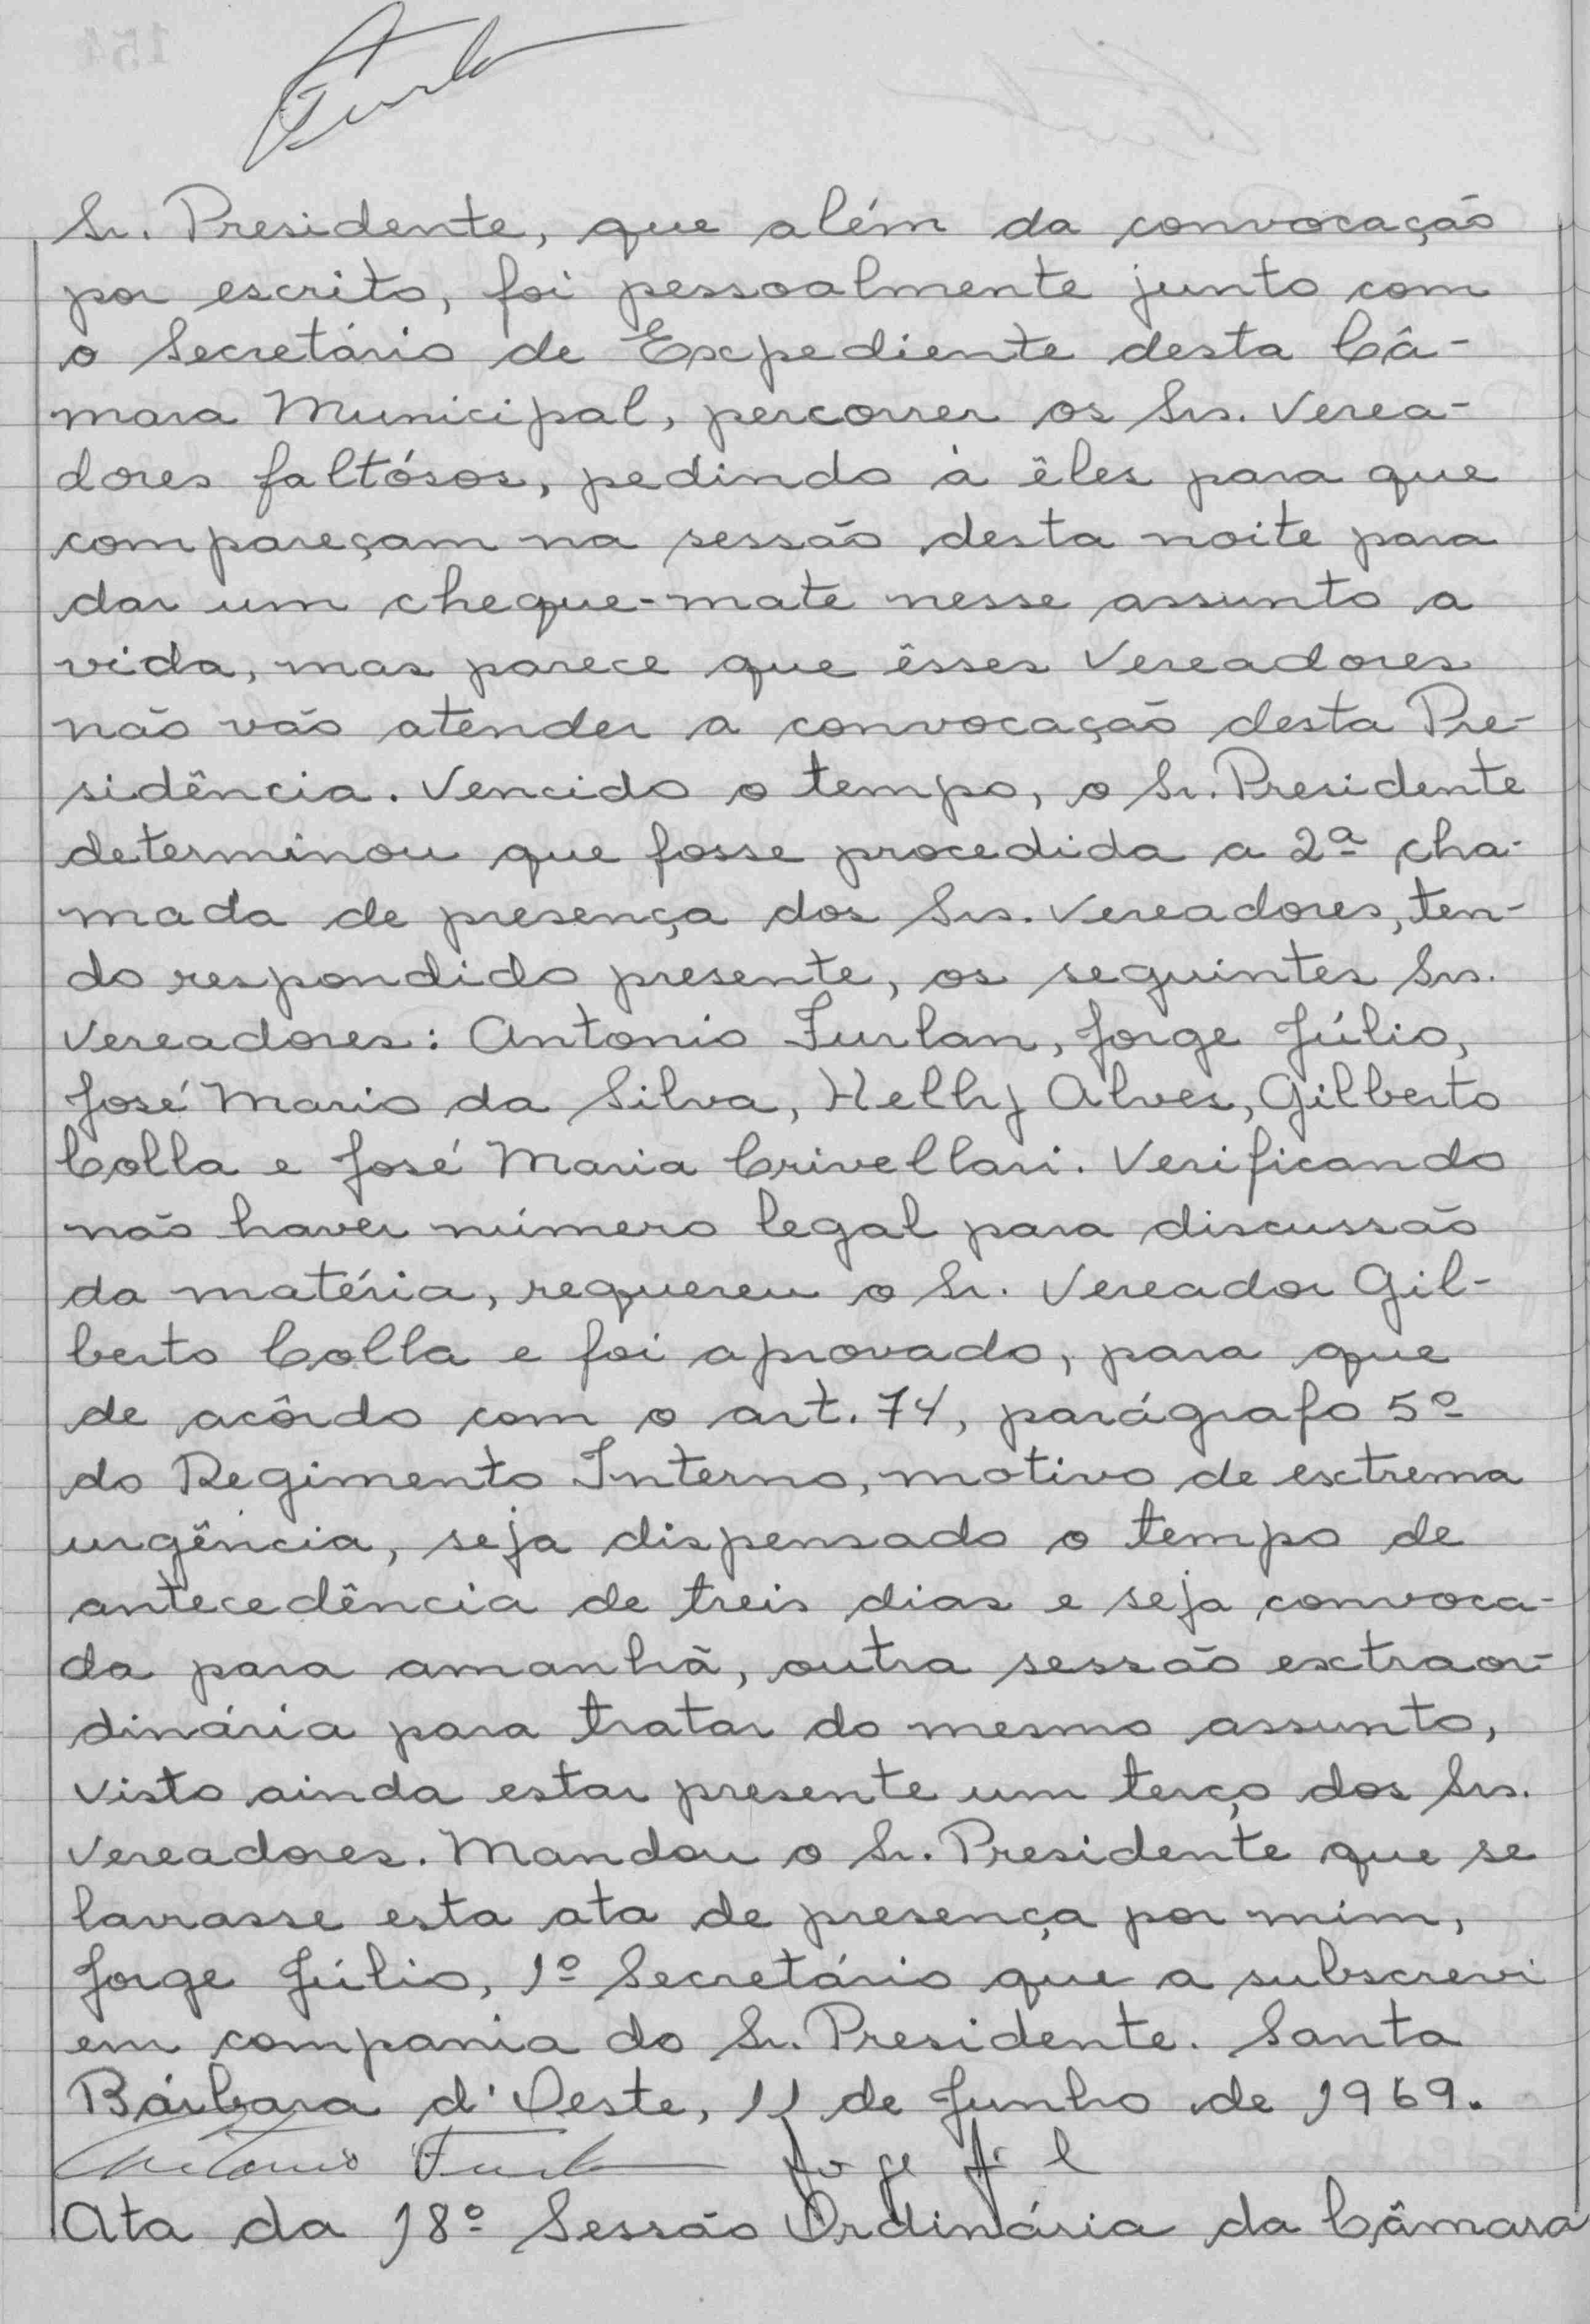 Furlan
Sr. Presidente, que além da convocação
por escrito, foi pessoalmente junto com
o Secretário de Expediente desta Câ-
mara Municipal, percorrer os Srs. Verea-
dores faltósos, pedindo à êles para que
compareçam na sessão desta noite para
dar um cheque-mate nesse assunto a
vida, mas parece que êsses Vereadores
não vão atender a convocação desta Pre-
sidência. Vencido o tempo, o Sr. Presidente
determinou que fosse procedida a 2ª cha-
mada de presença dos Srs. Vereadores, ten-
do respondido presente, os seguintes Srs.
Vereadores: Antonio Furlan, Jorge Júlio,
José Mario da Silva, Helhy Alves, Gilberto
Colla e José Maria Crivellari. Verificando
não haver número legal para discussão
da matéria, requereu o Sr. Vereador Gil-
berto Colla e foi aprovado, para que
de acôrdo com o art. 74, parágrafo 5º
do Regimento Interno, motivo de extrema
urgência, seja dispensado o tempo de
antecedência de treis dias e seja convoca-
da para amanhã, outra sessão extraor-
dinária para tratar do mesmo assunto,
visto ainda estar presente um terço dos Srs.
Vereadores. Mandou o Sr. Presidente que se
lavrasse esta ata de presença por mim,
Jorge Júlio, 1º Secretário que a subscrevi
em compania do Sr. Presidente. Santa
Bárbara d'Oeste, 11 de Junho de 1969.
Antonio Furlan Jorge Júlio
Ata da 18º Sessão Ordinária da Câmara